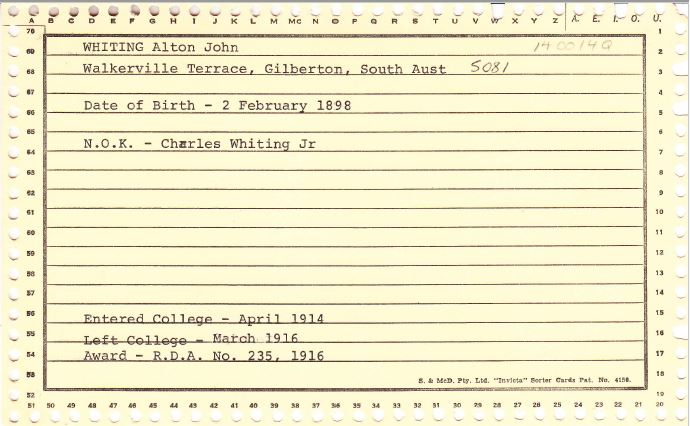 A B C D E F G H I J K L M MC N O P Q R S T U V W X Y Z A. E. I. O. U.
70 1
WHITING Alton John 1400149
69 2
Walkerville Terrace, Gilberton, South Aust 5081
68 3
67 4
Date of Birth - 2 February 1898
66 5
65 6
N.O.K. - Charles Whiting Jr
64 7
63 8
62 9
61 10
60 11
59 12
58 13
57 14
56 15
Entered College - April 1914
55 16
Left College - March 1916
Award - R.D.A. No. 235, 1916
54 17
53 18
S. & McD. Pty. Ltd. "Invicta" Sorter Cards Pat. No. 4150.
52 19
51 50 49 48 47 46 45 44 43 42 41 40 39 38 37 36 35 34 33 32 31 30 29 28 27 26 25 24 23 22 21 20